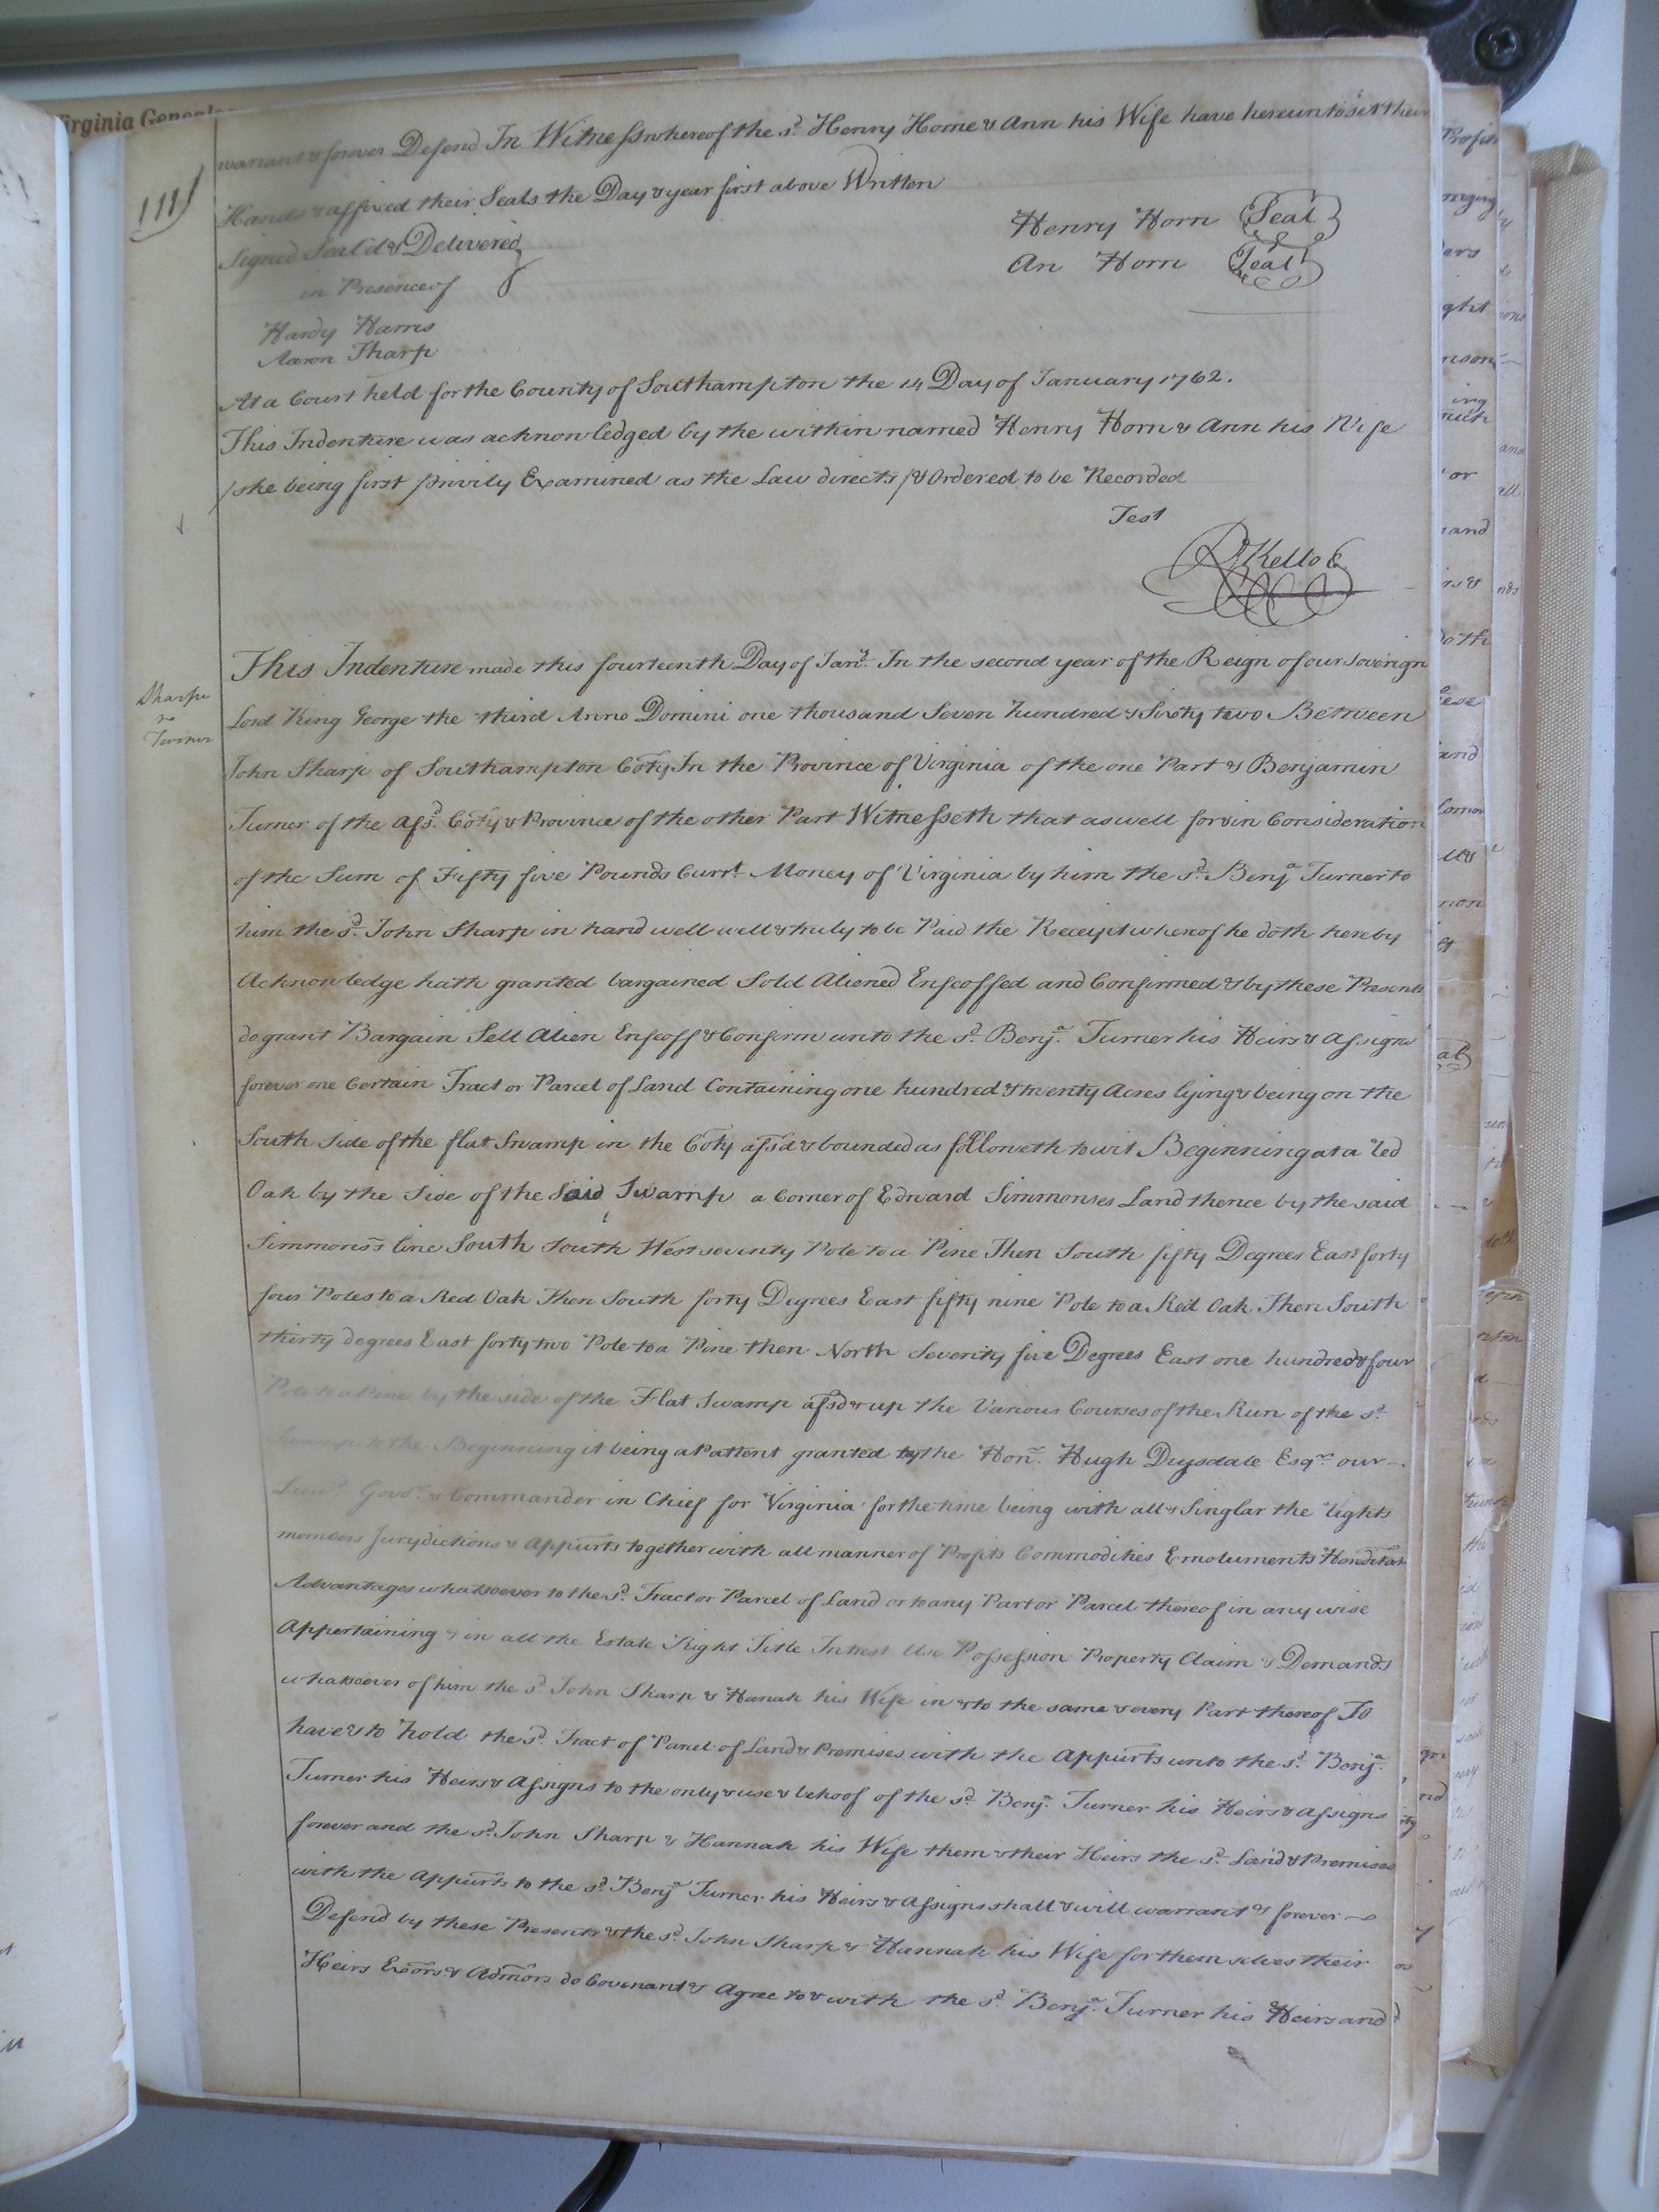 Virginia Genealo
111
warrant & forever Defend In Witness whereof the sd. Henry Horne & Ann his Wife have hereunto set their
Hands & affixed their Seals the Day & year first above Written
Signed Seal'd & Delivered
in Presence of
Henry Horn Seal
An Horn Seal
Hardy Harris
Aaron Sharp
At a Court held for the County of Southampton the 14 Day of January 1762.
This Indenture was acknowledged by the within named Henry Horn & Ann his Wife
/she being first privily Examined as the Law directs/ & Ordered to be Recorded
Test
R Kello C
Sharpe
to
Turner
This Indenture made this fourteenth Day of Jany. In the second year of the Reign of our Soverign
Lord King George the third Anno Domini one thousand Seven hundred & Sixty two Between
John Sharp of Southampton Coty In the Province of Virginia of the one Part & Benjamin
Turner of the afsd. Coty & Province of the other Part Witnesseth that as well for & in Consideration
of the Sum of Fifty five Pounds Currt. Money of Virginia by him the sd. Benja. Turner to
him the sd. John Sharp in hand well well & truly to be Paid the Receipt whereof he doth hereby
Acknowledge hath granted bargained Sold Aliened Enfeoffed and Confirmed & by these Presents
do grant Bargain Sell Alien Enfeoff & Confirm unto the sd. Benja. Turner his Heirs & Assigns
forever one Certain Tract or Parcel of Land Containing one hundred & twenty Acres lying & being on the
South Side of the flat Swamp in the Coty afsd & bounded as followeth to wit Beginning at a red
Oak by the Side of the Said Swamp a Corner of Edward Simmonses Land thence by the said
Simmons's line South South West seventy Pole to a Pine Then South fifty Degrees East forty
four Poles to a Red Oak Then South forty Degrees East fifty nine Pole to a Red Oak Then South
thirty degrees East forty two Pole to a Pine then North Seventy five Degrees East one hundred & four
Pole to a Pine by the side of the Flat Swamp afsd & up the Various Courses of the Run of the sd.
Swamp to the Beginning it being a Pattent granted by the Hon. Hugh Drysdale Esqr. our
Lieut. Govr. & Commander in Chief for Virginia for the time being with all & Singlar the rights
members Jurydictions & Appurts together with all manner of Profits Commodities Emoluments Heredita
Advantages whatsoever to the sd. Tract or Parcel of Land or to any Part or Parcel thereof in any wise
Appertaining & in all the Estate Right Title Intrest Use Possession Property Claim & Demands
whatsoever of him the sd. John Sharp & Hanah his Wife in & to the same & every Part thereof To
have & to hold the sd. Tract of Parcel of Land & Premises with the Appurts unto the sd. Benja.
Turner his Heirs & Assigns to the only & use & behoof of the sd. Benja. Turner his Heirs & Assigns
forever and the sd. John Sharp & Hannah his Wife them & their Heirs the sd. Land & Premises
with the Appurts to the sd. Benja Turner his Heirs & Assigns shall & will warrant & forever
Defend by these Presents & the sd. John Sharp & Hannah his Wife for themselves their
Heirs Exors & Admors do Covenant & Agree to & with the sd. Benja. Turner his Heirs and